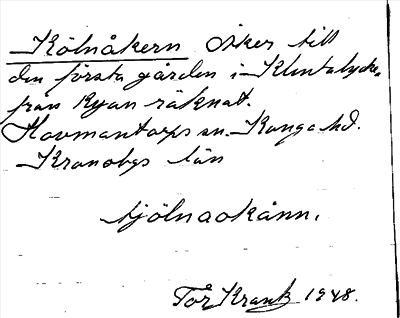 Kölnåkern Åker till
den första gården i Klintalycke,
från Ryan räknat.
Hovmantorps sn. Konga hd.
Kronobgs län
tjölnaokånn.
Tor Krank 1948.